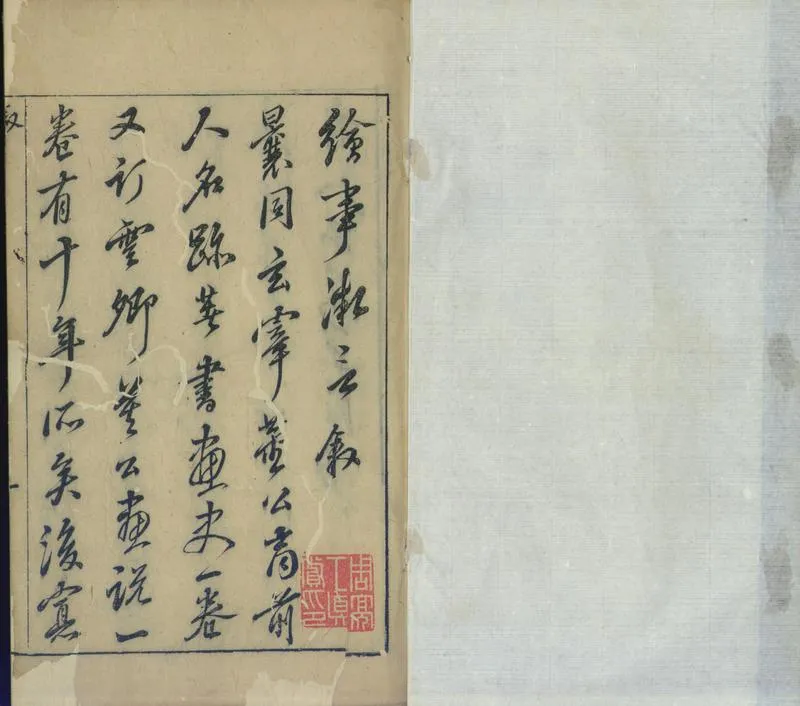 繪事微言敘
曩同玄宰董公商前
人名跡著書畫史一卷
又訂雲卿莫公畫說一
卷有十年所矣後寓